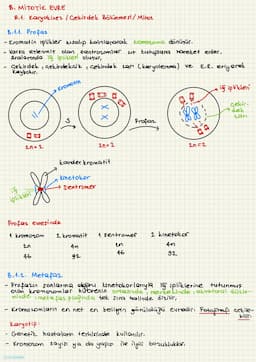 B. MİTOTİK EVRE
B.1. Karyokinez / Çekirdek Bölünmesi / Mitoz
B.1.1. Profaz
- Kromatin iplikler kısalıp kalınlaşarak kromozoma dönüşür.
- Karşı kutuplara hareket eder.
Aralarında iğ iplikleri oluşur.
- Çekirdek, çekirdekçik, çekirdek zarı (karyolemma) ve E.R. eriyerek
kaybolur.
kromatin
iğ iplikleri
çekirdek
zarı
S
Profaz
2n=2
2n=2
2n=2
kardeş kromatit
kinetokor
sentromer
iğ
iplikleri
Profaz evresinde
1 kromozom 2 kromatit 1 sentromer 2 kinetokor
2n 4n 2n 4n
46 92 46 92
B.1.2. Metafaz
- Profazın sonlarına doğru kinetokorlarıyla iğ ipliklerine tutunmuş
olan kromozomlar hücrenin ortasında, merkezinde, ekvatoral düzle-
minde, metafaz plağında tek sıra halinde dizilir.
- Kromozomların en net en belirgin göründüğü evredir. Fotoğrafı çekile-
bilir.
Karyotip:
- Genetik hastalığın tespitinde kullanılır.
- Kromozom sayı ya da yapısı ile ilgili bozukluklar.